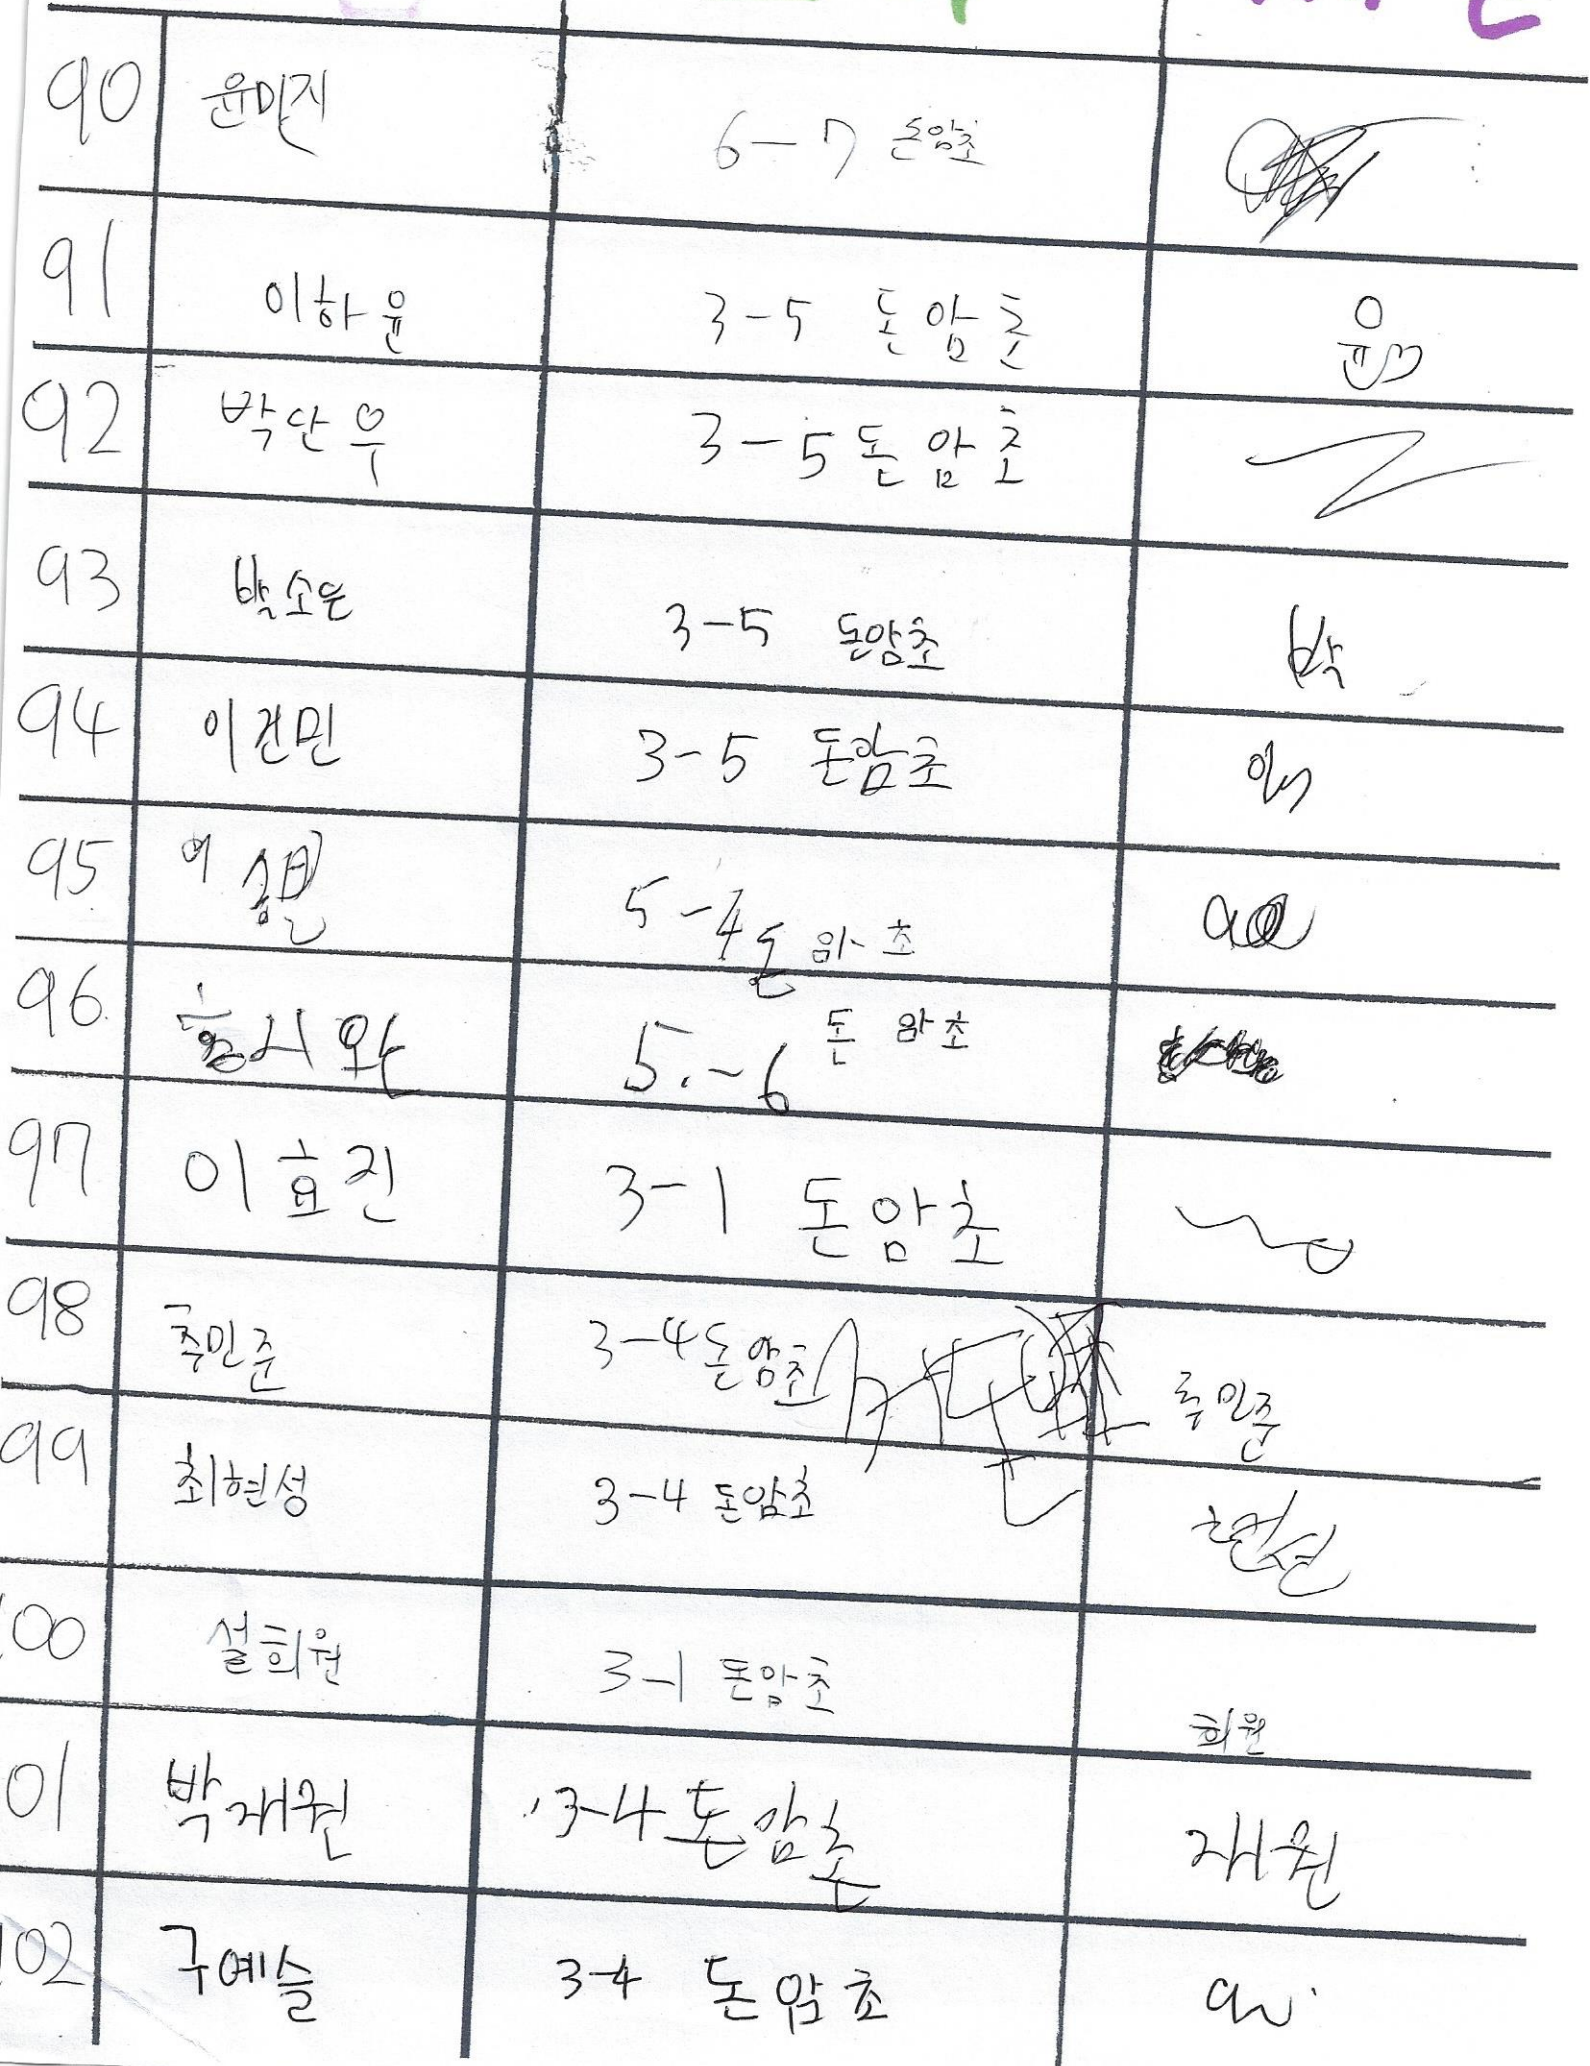 90 윤민지 6-7 돈암초
91 이하윤 3-5 돈암초 윤
92 박단우 3-5 돈암초
93 박소은 3-5 돈암초 박
94 이건민 3-5 돈암초
95 이 5-4 돈암초
96 5.-6 돈암초
97 이효진 3-1 돈암초
98 추민준 3-4 돈암초 추민준
99 최현성 3-4 돈암초 현성
100 설희원 3-1 돈암초 희원
01 박재원 3-4 돈암초 재원
102 구예슬 3-4 돈암초